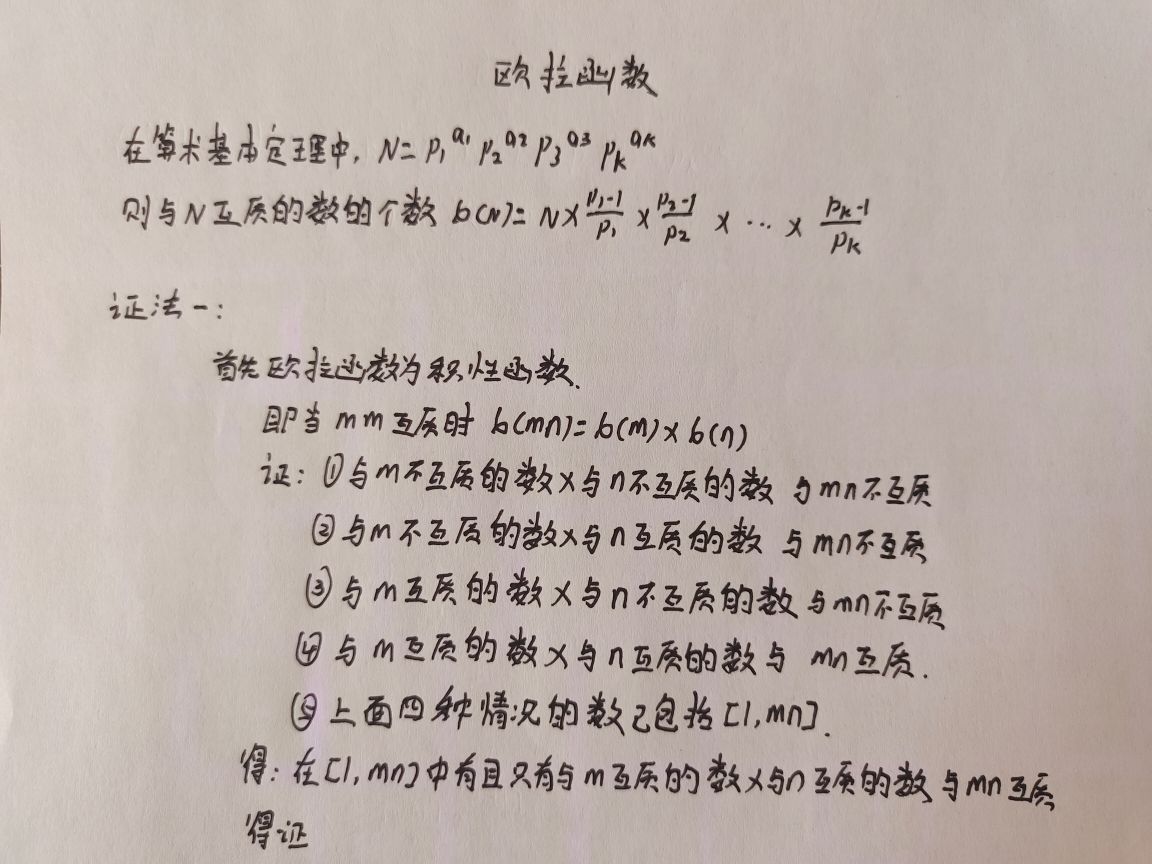 欧拉函数
在算术基本定理中, N=p₁^a₁ p₂^a2 p₃^a3 pₖ^aк
则与N互质的数的个数 b(N)= N×(p₁-1)/p₁ × (p₂-1)/p₂ × ⋯ × (pₖ-1)/pₖ
证法一:
首先欧拉函数为积性函数.
即当mm互质时 b(mn)=b(m)×b(n)
证: ①与m不互质的数×与n不互质的数 与mn不互质
②与m不互质的数×与n互质的数 与mn不互质
③与m互质的数×与n不互质的数与mn不互质
④与m互质的数×与n互质的数与 mn互质.
⑤上面四种情况的数已包括[1,mn].
得: 在[1,mn]中有且只有与m互质的数×与n互质的数 与mn互质
得证